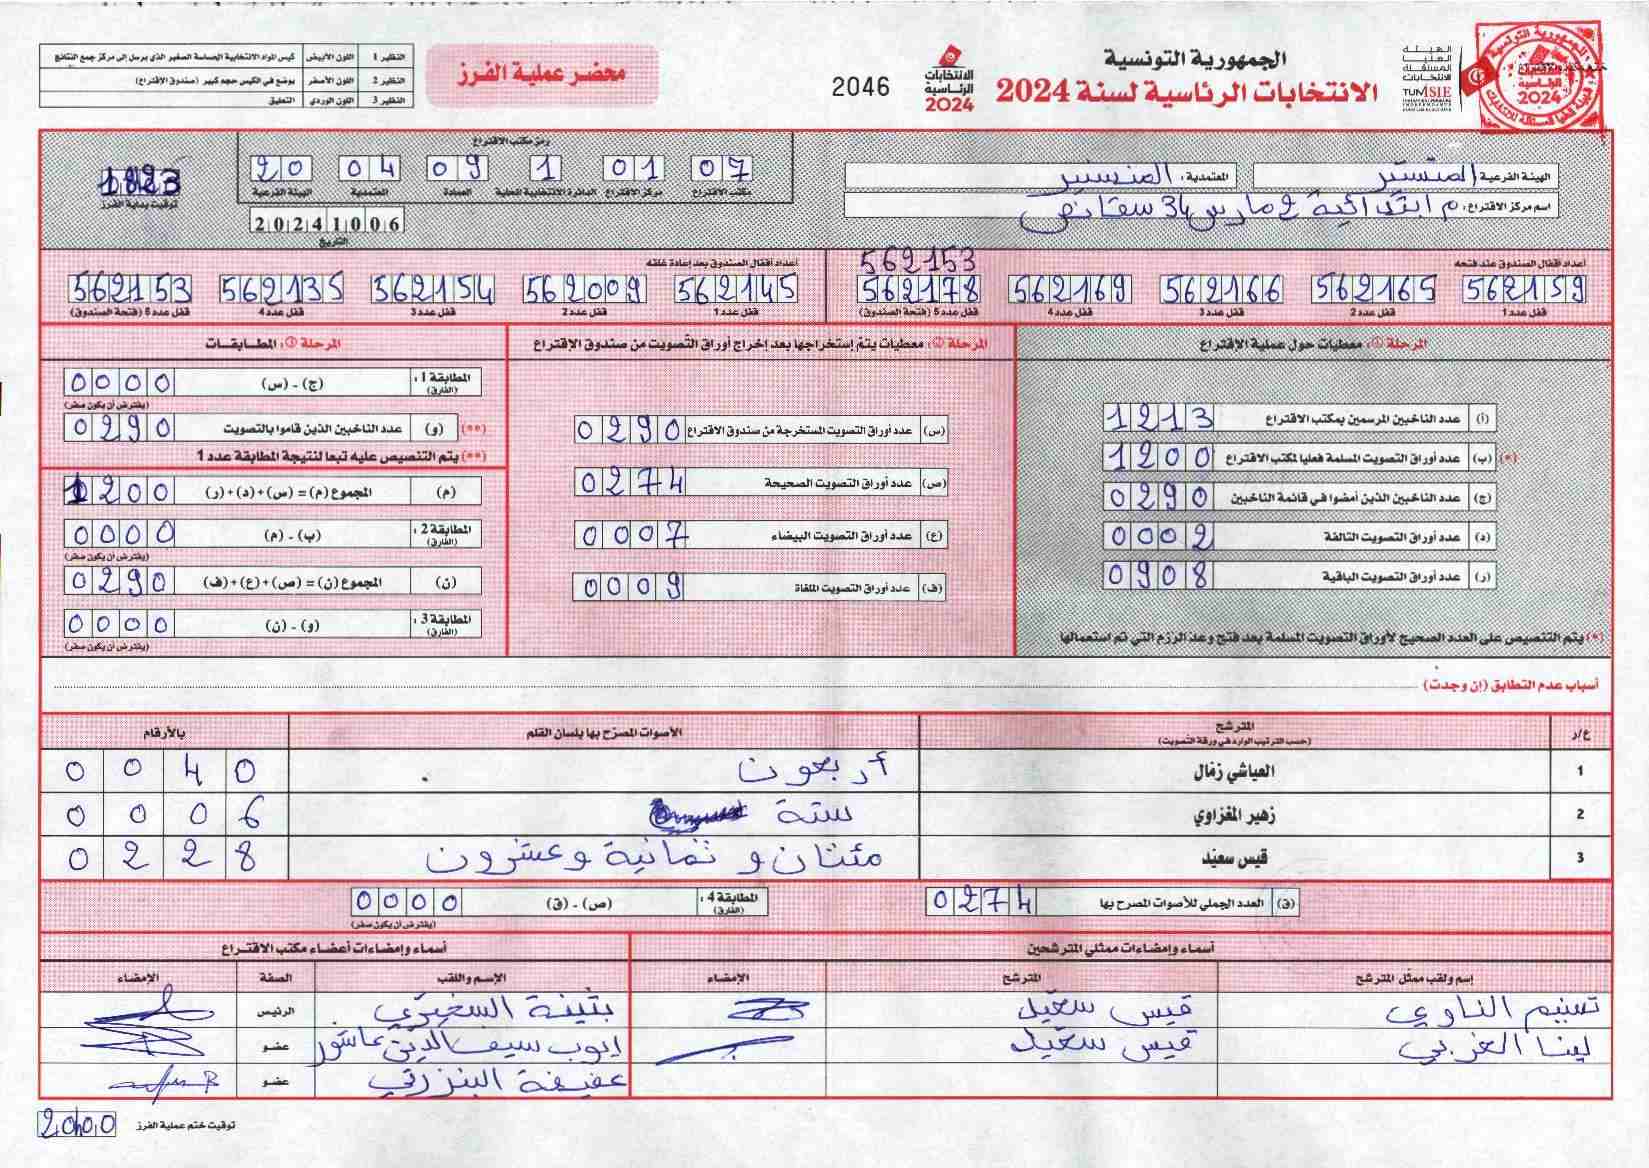 الجمهورية التونسية
الانتخابات الرئاسية لسنة 2024
الهيئة العليا المستقلة للانتخابات
TUNISIE
الانتخابات الرئاسية 2024
2046
محضر عملية الفرز
النظير 1 اللون الأبيض كيس المواد الانتخابية الحساسة الصغير الذي يرسل إلى مركز جمع النتائج
النظير 2 اللون الأصفر يوضع في الكيس حجم كبير (صندوق الإقتراع)
النظير 3 اللون الوردي التعليق
الهيئة الفرعية: المنستير
المعتمدية: المنستير
اسم مركز الاقتراع: م ابتدائية 2 مارس 34 سقانص
رمز مكتب الاقتراع
20 04 09 1 01 07
الهيئة الفرعية المعتمدية العمادة الدائرة الانتخابية المحلية مركز الاقتراع مكتب الاقتراع
20241006
التاريخ
توقيت بداية الفرز
أعداد أقفال الصندوق عند فتحه
562153
562159 562165 562166 562169 562178
قفل عدد 1 قفل عدد 2 قفل عدد 3 قفل عدد 4 قفل عدد 5 (فتحة الصندوق)
أعداد أقفال الصندوق بعد إعادة غلقه
562145 562009 562154 562135 562153
قفل عدد 1 قفل عدد 2 قفل عدد 3 قفل عدد 4 قفل عدد 5 (فتحة الصندوق)
المرحلة ①: معطيات حول عملية الإقتراع
(أ) عدد الناخبين المرسمين بمكتب الاقتراع 1213
(*) (ب) عدد أوراق التصويت المسلمة فعليا لمكتب الاقتراع 1200
(ج) عدد الناخبين الذين أمضوا في قائمة الناخبين 0290
(د) عدد أوراق التصويت التالفة 0002
(ر) عدد أوراق التصويت الباقية 0908
(*) يتم التنصيص على العدد الصحيح لأوراق التصويت المسلمة بعد فتح وعد الرزم التي تم استعمالها
المرحلة ②: معطيات يتم إستخراجها بعد إخراج أوراق التصويت من صندوق الإقتراع
(س) عدد أوراق التصويت المستخرجة من صندوق الاقتراع 0290
(ص) عدد أوراق التصويت الصحيحة 0274
(ع) عدد أوراق التصويت البيضاء 0007
(ف) عدد أوراق التصويت الملغاة 0009
المرحلة ③: المطابقات
المطابقة 1: (الفارق) (ج) - (س) 0000
(يفترض أن يكون صفر)
(**) (و) عدد الناخبين الذين قاموا بالتصويت 0290
(**) يتم التنصيص عليه تبعا لنتيجة المطابقة عدد 1
(م) المجموع (م) = (س)+(د)+(ر) 1200
المطابقة 2: (الفارق) (ب) - (م) 0000
(يفترض أن يكون صفر)
(ن) المجموع (ن) = (ص)+(ع)+(ف) 0290
المطابقة 3: (الفارق) (و) - (ن) 0000
(يفترض أن يكون صفر)
أسباب عدم التطابق (إن وجدت)
ع/ر المترشح الأصوات المصرّح بها بلسان القلم بالأرقام
(حسب الترتيب الوارد في ورقة التصويت)
1 العياشي زمّال أربعون 0040
2 زهير المغزاوي ستة 0006
3 قيس سعيّد مئتان و ثمانية وعشرون 0228
(ق) العدد الجملي للأصوات المصرح بها 0274
المطابقة 4: (الفارق) (ص) - (ق) 0000
(يفترض أن يكون صفر)
أسماء وإمضاءات ممثلي المترشحين
إسم ولقب ممثّل المترشح المترشح الإمضاء
تسنيم الناوي قيس سعيّد
لينا الغربي قيس سعيّد
أسماء وإمضاءات أعضاء مكتب الاقتراع
الإسم واللقب الصفة الإمضاء
بثينة الرئيس
ايوب سيف الدين عاشور عضو
عفيفة البنزرتي عضو
توقيت ختم عملية الفرز 20h00